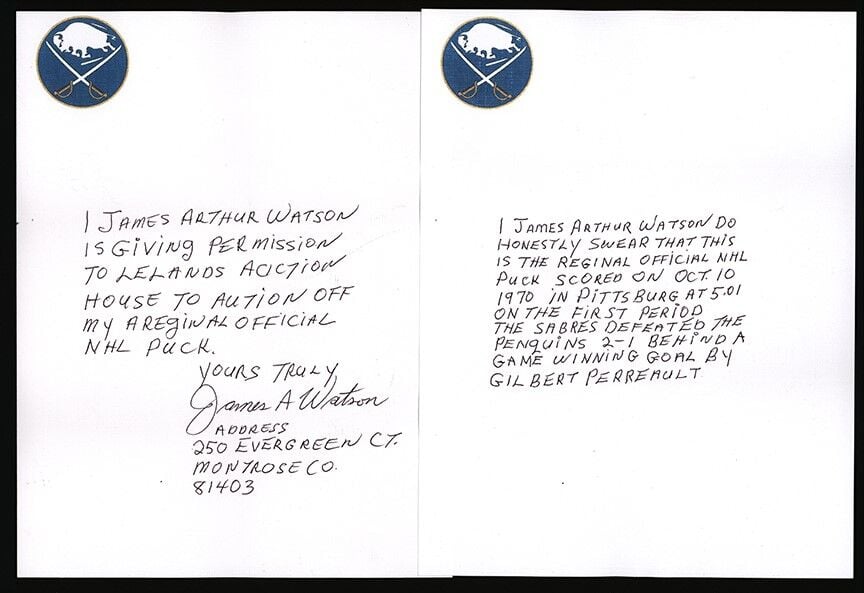 I JAMES ARTHUR WATSON
IS GIVING PERMISSION
TO LELANDS AUCTION
HOUSE TO AUTION OFF
MY AREGINAL OFFICIAL
NHL PUCK.
YOURS TRULY
James A Watson
ADDRESS
250 EVERGREEN CT.
MONTROSE CO.
81403
I JAMES ARTHUR WATSON DO
HONESTLY SWEAR THAT THIS
IS THE REGINAL OFFICIAL NHL
PUCK SCORED ON OCT. 10
1970 IN PITTSBURG AT 5.01
ON THE FIRST PERIOD
THE SABRES DEFEATED THE
PENGUINS 2-1 BEHIND A
GAME WINNING GOAL BY
GILBERT PERREAULT